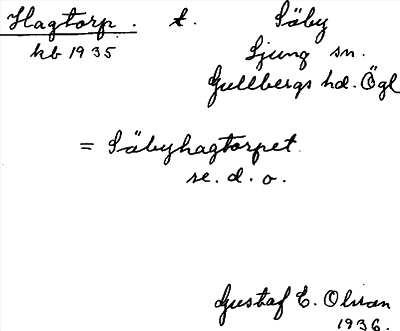 Hagtorp. t. Säby
kb 1935 Ljung sn.
Gullbergs hd. Ögl
= Säbyhagtorpet
se. d. o.
Gustaf E. Olsson
1936.